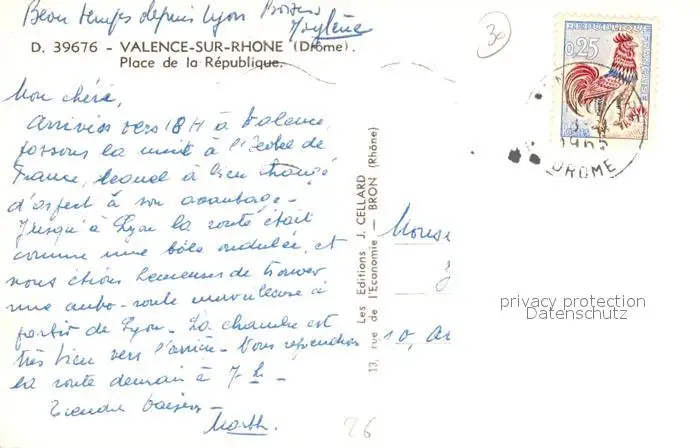 Beau temps depuis Lyon Baisers
D. 39676 - VALENCE-SUR-RHONE (Drôme).
Place de la République.
Mon chéri,
Arrivées vers 18H à Valence,
passons la nuit à l'Hotel de
France, lequel a bien changé
d'aspect à son avantage -
Jusqu'à Lyon la route était
comme une tôle ondulée, et
nous étions heureuses de trouver
une auto-route merveilleuse à
partir de Lyon - La chambre est
très bien vers l'arrière - Nous reprendrons
la route demain à 7 h -
Tendres baisers -
Les Editions J. CELLARD
13, rue de l'Economie - BRON (Rhône)
30
REPUBLIQUE FRANÇAISE
0,25
DROME
10,
26
privacy protection
Datenschutz